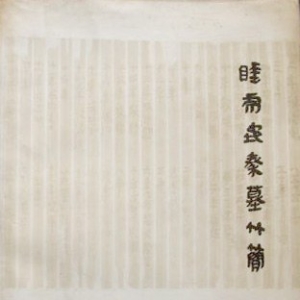 睡虎地秦墓竹簡